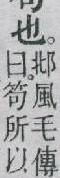 也。
邶風毛傳
曰。笱所以